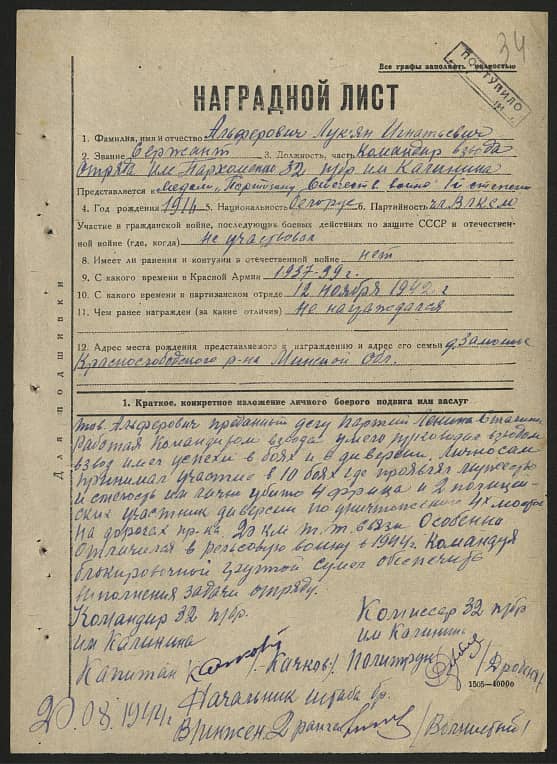 34
Все графы заполнять полностью
ПОСТУПИЛО
НАГРАДНОЙ ЛИСТ
1. Фамилия, имя и отчество Альферович Лукьян Игнатьевич
2. Звание Сержант 3. Должность, часть Командир взвода
Отряда им Пархоменко 32 пбр им Калинина
Представляется к медали „Партизану Отечеств. войны" I степени
4. Год рождения 1914 5. Национальность белорус 6. Партийность чл. ВЛКСМ
Участие в гражданской войне, последующих боевых действиях по защите СССР и отечествен-
ной войне (где, когда) не участвовал
8. Имеет ли ранения и контузии в отечественной войне нет
9. С какого времени в Красной Армии 1937-39 г.
10. С какого времени в партизанском отряде 12 ноября 1942 г
11. Чем ранее награжден (за какие отличия) не награждался
12. Адрес места рождения представляемого к награждению и адрес его семьи д. Замошье
Краснослободского р-на Минской Обл.
Для подшивки
1. Краткое, конкретное изложение личного боевого подвига или заслуг
тов. Альферович преданный делу Партии Ленина Сталина
Работая Командиром взвода умело руководил взводом
взвод имел успехи в боях и диверсии. Лично сам
принимал участие в 10 боях где проявлял мужество
и стойкость им лично убито 4 фрица и 2 полицей-
ских участник диверсии по уничтожению 4х мостов
на дорогах р-на 20 км т. т. связи Особенно
отличился в рельсовую войну в 1944 г. Командуя
блокировочной группой сумел обеспечить
выполнения задачи отряду.
Командир 32 пбр.
им Калинина
Комиссар 32 пбр
им Калинина
Капитан /Качков/
Политрук
1505—4000
20.08.1944 г.
Начальник штаба бр.